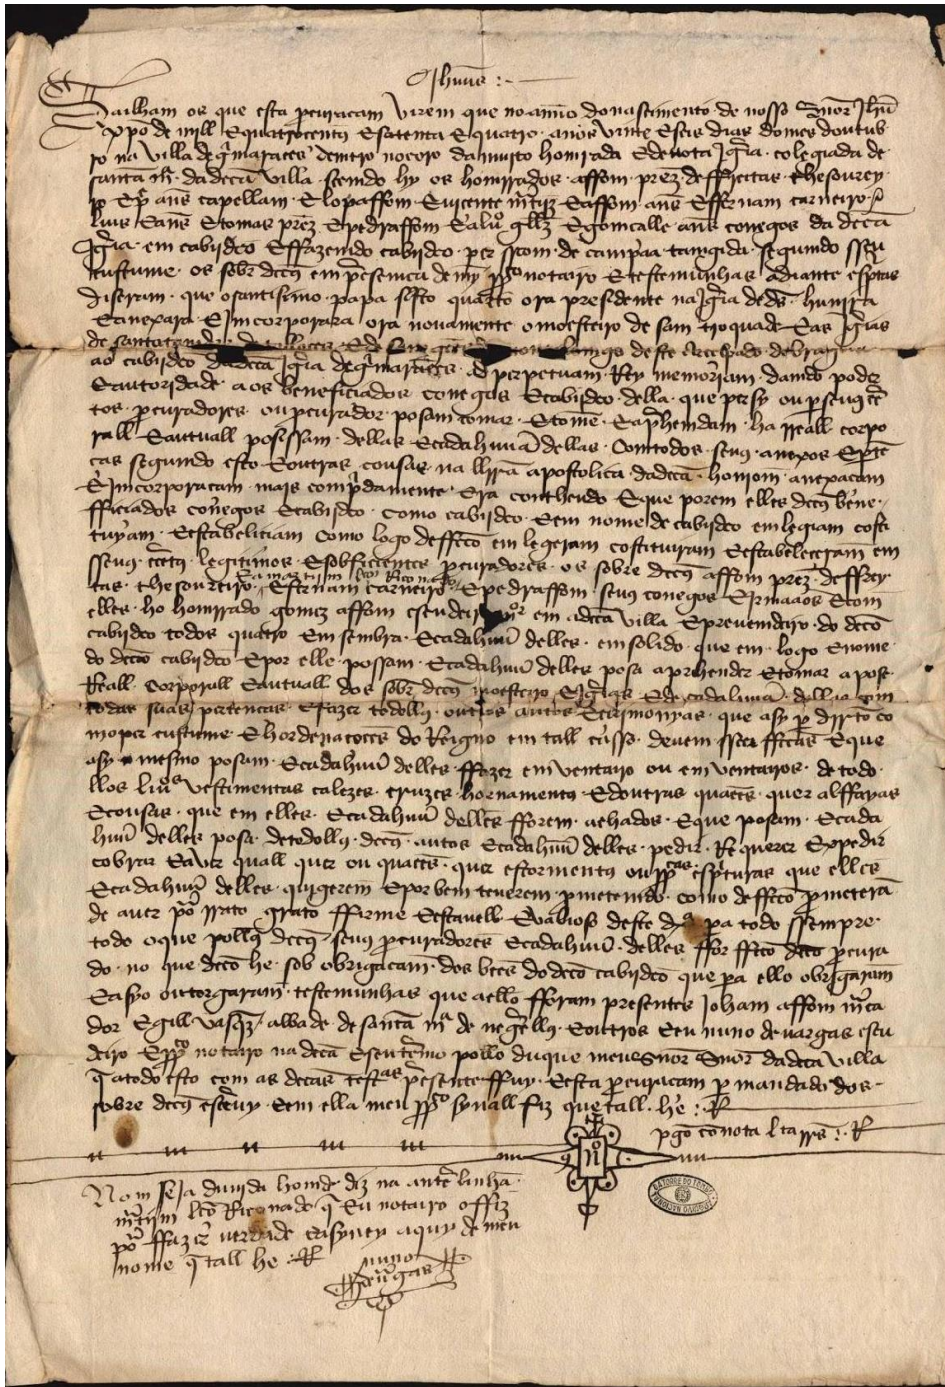 Jhuus
Saibham os que esta pcuraçam virem que no anno do nasçimento de nosso Snõr Jhũ
xpõ de mill E quatroçentos E satenta E quatro anos vinte E seis dias do mes doutub
ro na villa de gmaraães demtro no coro da muito homrada E deuota Jgria colegiada de
santa mª da dcã villa seendo hy os homrrados affom prez de ffreitas thesourey
ro E anẽs capellam E lopaffom E uiçente mtiz E affom anẽs E ffernam carneiro
luis Eanẽs E tomas prez E pedraffom E aluº gllz E gomcalle anẽs conegos da dcã
Jgria em cabijdoo E ffazemdo cabijdoo per ssom de campãa tamgida segumdo sseu
custume os sobr dcos em presemca de my ppco notairo E testemunhas adiante espritas
diseram que o santisimo papa sisto quarto ora presidente na Jgria de ds hunira
E anexara E Jmcorporara ora nouamente o moesteiro de sam troquade E as Jgrias
de santa deste Arcebpado de braga
ao cabijdoo da dcã Jgria de gmaraães ad perpetuam Rey memoriam damdo poder
E autoridade a os benefiçiados conegos E cabijdoo della que per sy ou p seus çer
tos pcuradores ou pcurador posam tomar E tome E aprhemdam ha rreall corpo
rall E autuall posissam dellas E cada huũa dellas com todos seus anexos E pte
cas segumdo esto E outras cousas na llra apostolica da dcã honiom anexacam
E Jmcorporacam mais compridamente Era contheudo E que porem elles dcos bene
ffiçiados conegos E cabijdoo como cabijdoo E em nome de cabijdoo emlegiam costi
tuyam E estabeliçiam como logo deffco em legeram costituiram E estabeleçeram em
sseus çertos legitimos E sobfiçientes pcuradores os sobre dcos affom prez de ffrey
E a martym lço Riconado
tas thesoureiro E ffernam carneiro E pedraffom seus conegos E Jrmaãos E com
elles ho homrrado gomez affom escudeiro mor em a dcã villa E prouemdeiro do dco
cabijdoo todos quatro Em sembra E cada huũ delles em solido que em logo E nome
do dco cabijdoo E por elle possam E cada huũ delles posa aprehender E tomar a pose
Reall corporall E autuall dos sobr dcos moesteiro E Jgrias E de cada huũa dellas com
todas suas pertencas E fazer todollos outros autos E çerimonyas que asy p dirto co
mo per custume E hordenacoees do Reigno em tall casso deuem sser ffectas E que
asy mesmo posam E cada huũ delles ffazer emuentairo ou emuentairos de todo
llos liuºs vestimentas calezes cruzes hornamentos E doutras quaees quer alffayas
E cousas que em elles E cada huũ delles fforem achados E que posam E cada
huũ delles posa de todollos dcos autos E cada huũ delles pedir Requerer Expedir
cobrar E auer quall quer ou quaees quer estormentos ou ppcas espturas que elles
E cada huũ delles quiserem E por bem teuerem pmetemdo como deffco pmeterã
de auer pº rrato grato ffirme E estauell E valioso deste dia pa todo ssempre
todo o que pollos dcos seus pcuradores E cada huũ delles ffor ffco dco pcura
do no que dco he sob obrigacam dos bees do dco cabijdoo que pa ello obrigaram
E asyo outorgaram testemunhas que a ello fforam presentes Joham affom mrca
dor E gill vasqz abbade de santa mª de negrellos E outros E eu nuno de uargas escu
deiro E ppco notairo na dcã E seu trmo pollo duque meu Snor Snor da dcã villa
q a todo esto com as dcas testas presente ffuy E esta pcuracam p mandado dos
sobre dcos escreuy E em ella meu ppco synall fiz que tall he
pgo com nota L ta rrs
Nom seJa duuida homde diz na antrelinha
mrtim lço Riconado q Eu notairo o ffiz
pº ffazer uerdade E asyney aquy de meu
nome q tall he
nuno
uargas